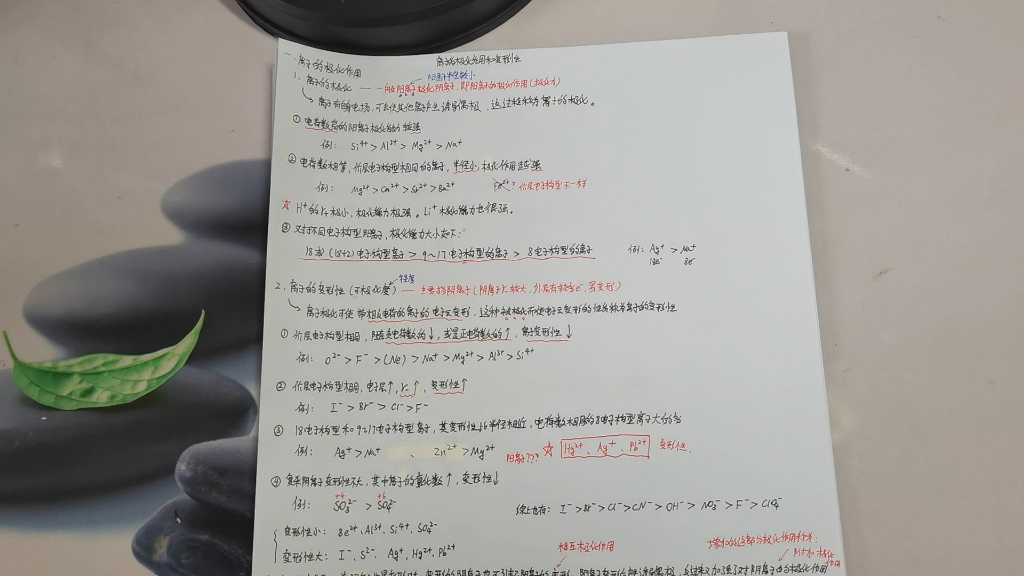 离子的极化作用和变形性
一、离子的极化作用
阳离子半径较小
1. 离子的极化 —— 一般阳离子极化阴离子,即阳离子的极化作用(极化力)
离子有电场,可去使其他离子产生诱导偶极,这过程称为离子的极化。
① 电荷数高的阳离子极化能力较强
例: Si⁴⁺ > Al³⁺ > Mg²⁺ > Na⁺
② 电荷数相等,价层电子构型相同的离子,半径小,极化作用越强
例: Mg²⁺ > Ca²⁺ > Sr²⁺ > Ba²⁺ ? 价层电子构型不一样
☆ H⁺的r₊极小,极化能力极强。Li⁺极化能力也很强。
③ 对于不同电子构型阳离子,极化能力大小如下:
18或(18+2)电子构型离子 > 9~17电子构型的离子 > 8电子构型的离子 例: Ag⁺ > Na⁺
18e⁻ 8e⁻
2. 离子的变形性(可极化度) —— 主要指阴离子(阴离子r₋较大,外层有较多e⁻,易变形)
离子极化可使带相反电荷的离子的电子云变形,这种被极化而使电子云变形的性质称为离子的变形性
① 价层电子构型相同,随负电荷数的↓,或是正电荷数的↑,离子变形性↓
例: O²⁻ > F⁻ > (Ne) > Na⁺ > Mg²⁺ > Al³⁺ > Si⁴⁺
② 价层电子构型相同,电子层↑,r₋↑,变形性↑
例: I⁻ > Br⁻ > Cl⁻ > F⁻
③ 18电子构型和9~17电子构型离子,其变形性比半径相近,电荷数相同的8电子构型离子大的多
例: Ag⁺ > Na⁺ 、 Zn²⁺ > Mg²⁺ 阳离子??? ☆ Hg²⁺、Ag⁺、Pb²⁺ 变形性.
④ 复杂阴离子变形性不大,其中离子的氧化数↑,变形性↓
+4 +6
例: SO₃²⁻ > SO₄²⁻ 综上也有: I⁻ > Br⁻ > Cl⁻ > CN⁻ > OH⁻ > NO₃⁻ > F⁻ > ClO₄⁻
变形性小: Be²⁺, Al³⁺, Si⁴⁺, SO₄²⁻
变形性大: I⁻, S²⁻, Ag⁺, Hg²⁺, Pb²⁺
相互极化作用 增加的这部分极化作用称为:
附加极化作用